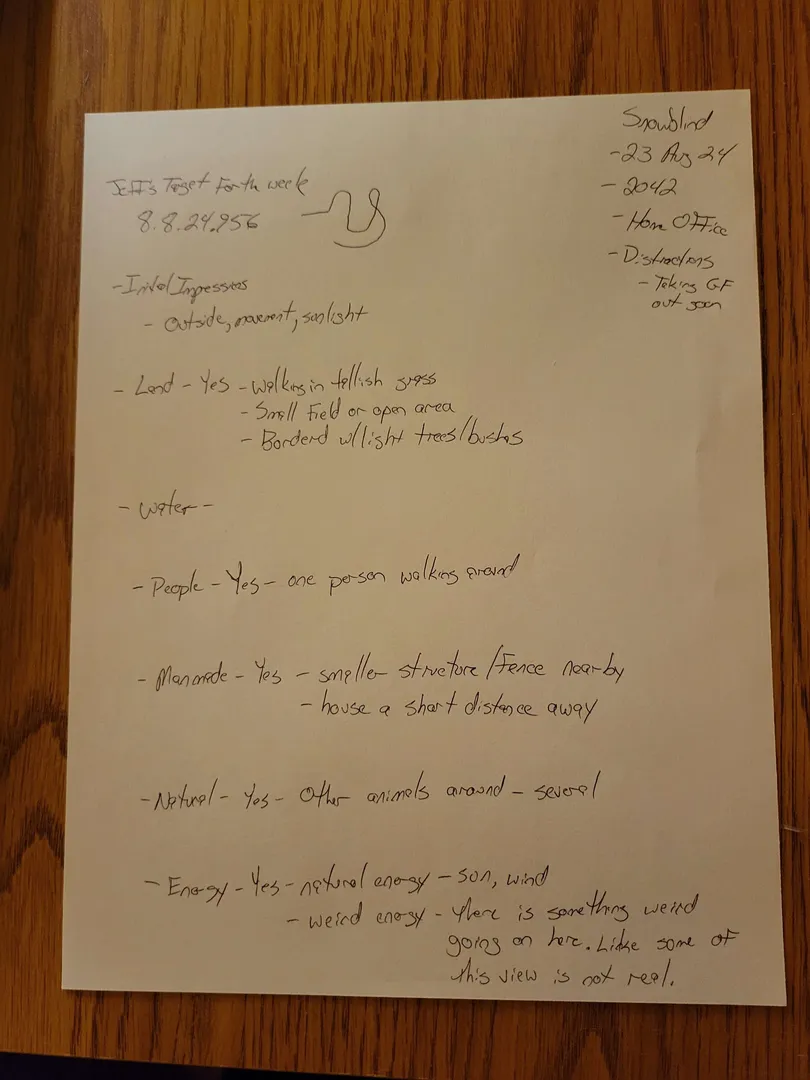 Snowblind
- 23 Aug 24
- 2042
- Home Office
- Distractions
- Taking GF
out soon
Jeff's Target For the week
8.8.24.956
- Initel Impressios
- Outside, movement, sunlight
- Land - Yes - Walking in tellish grass
- Small Field or open area
- Borderd w/light trees/bushes
- Water -
- People - Yes - one person walking around
- Manmade - Yes - smaller structure/Fence nearby
- house a short distance away
- Natural - Yes - Other animals around - several
- Energy - Yes - natural energy - sun, wind
- weird energy - there is something weird
going on here. Like some of
this view is not real.